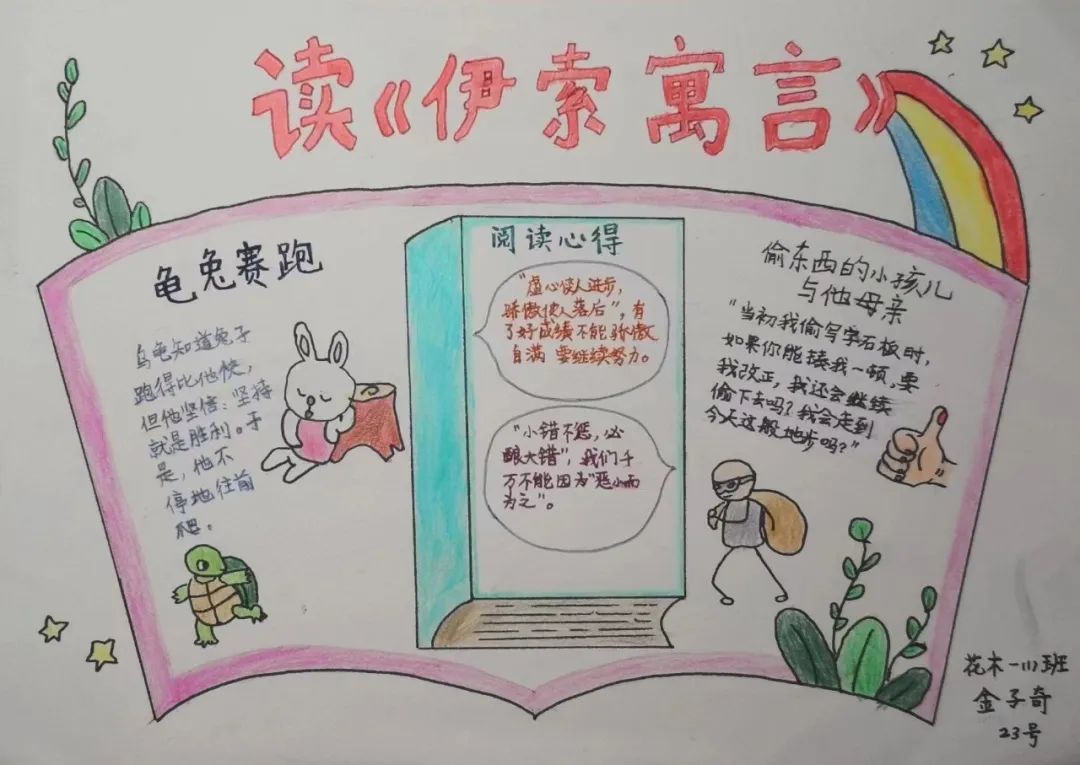 读《伊索寓言》
龟兔赛跑
乌龟知道兔子
跑得比他快，
但他坚信：坚持
就是胜利。于
是，他不
停地往前
爬。
阅读心得
“虚心使人进步，
骄傲使人落后”，有
了好成绩不能骄傲
自满 要继续努力。
“小错不惩，必
酿大错”，我们千
万不能因为“恶小而
为之”。
偷东西的小孩儿
与他母亲
“当初我偷写字石板时，
如果你能揍我一顿，要
我改正，我还会继续
偷下去吗？我会走到
今天这般地步吗？”
花木一(1)班
金子奇
23号